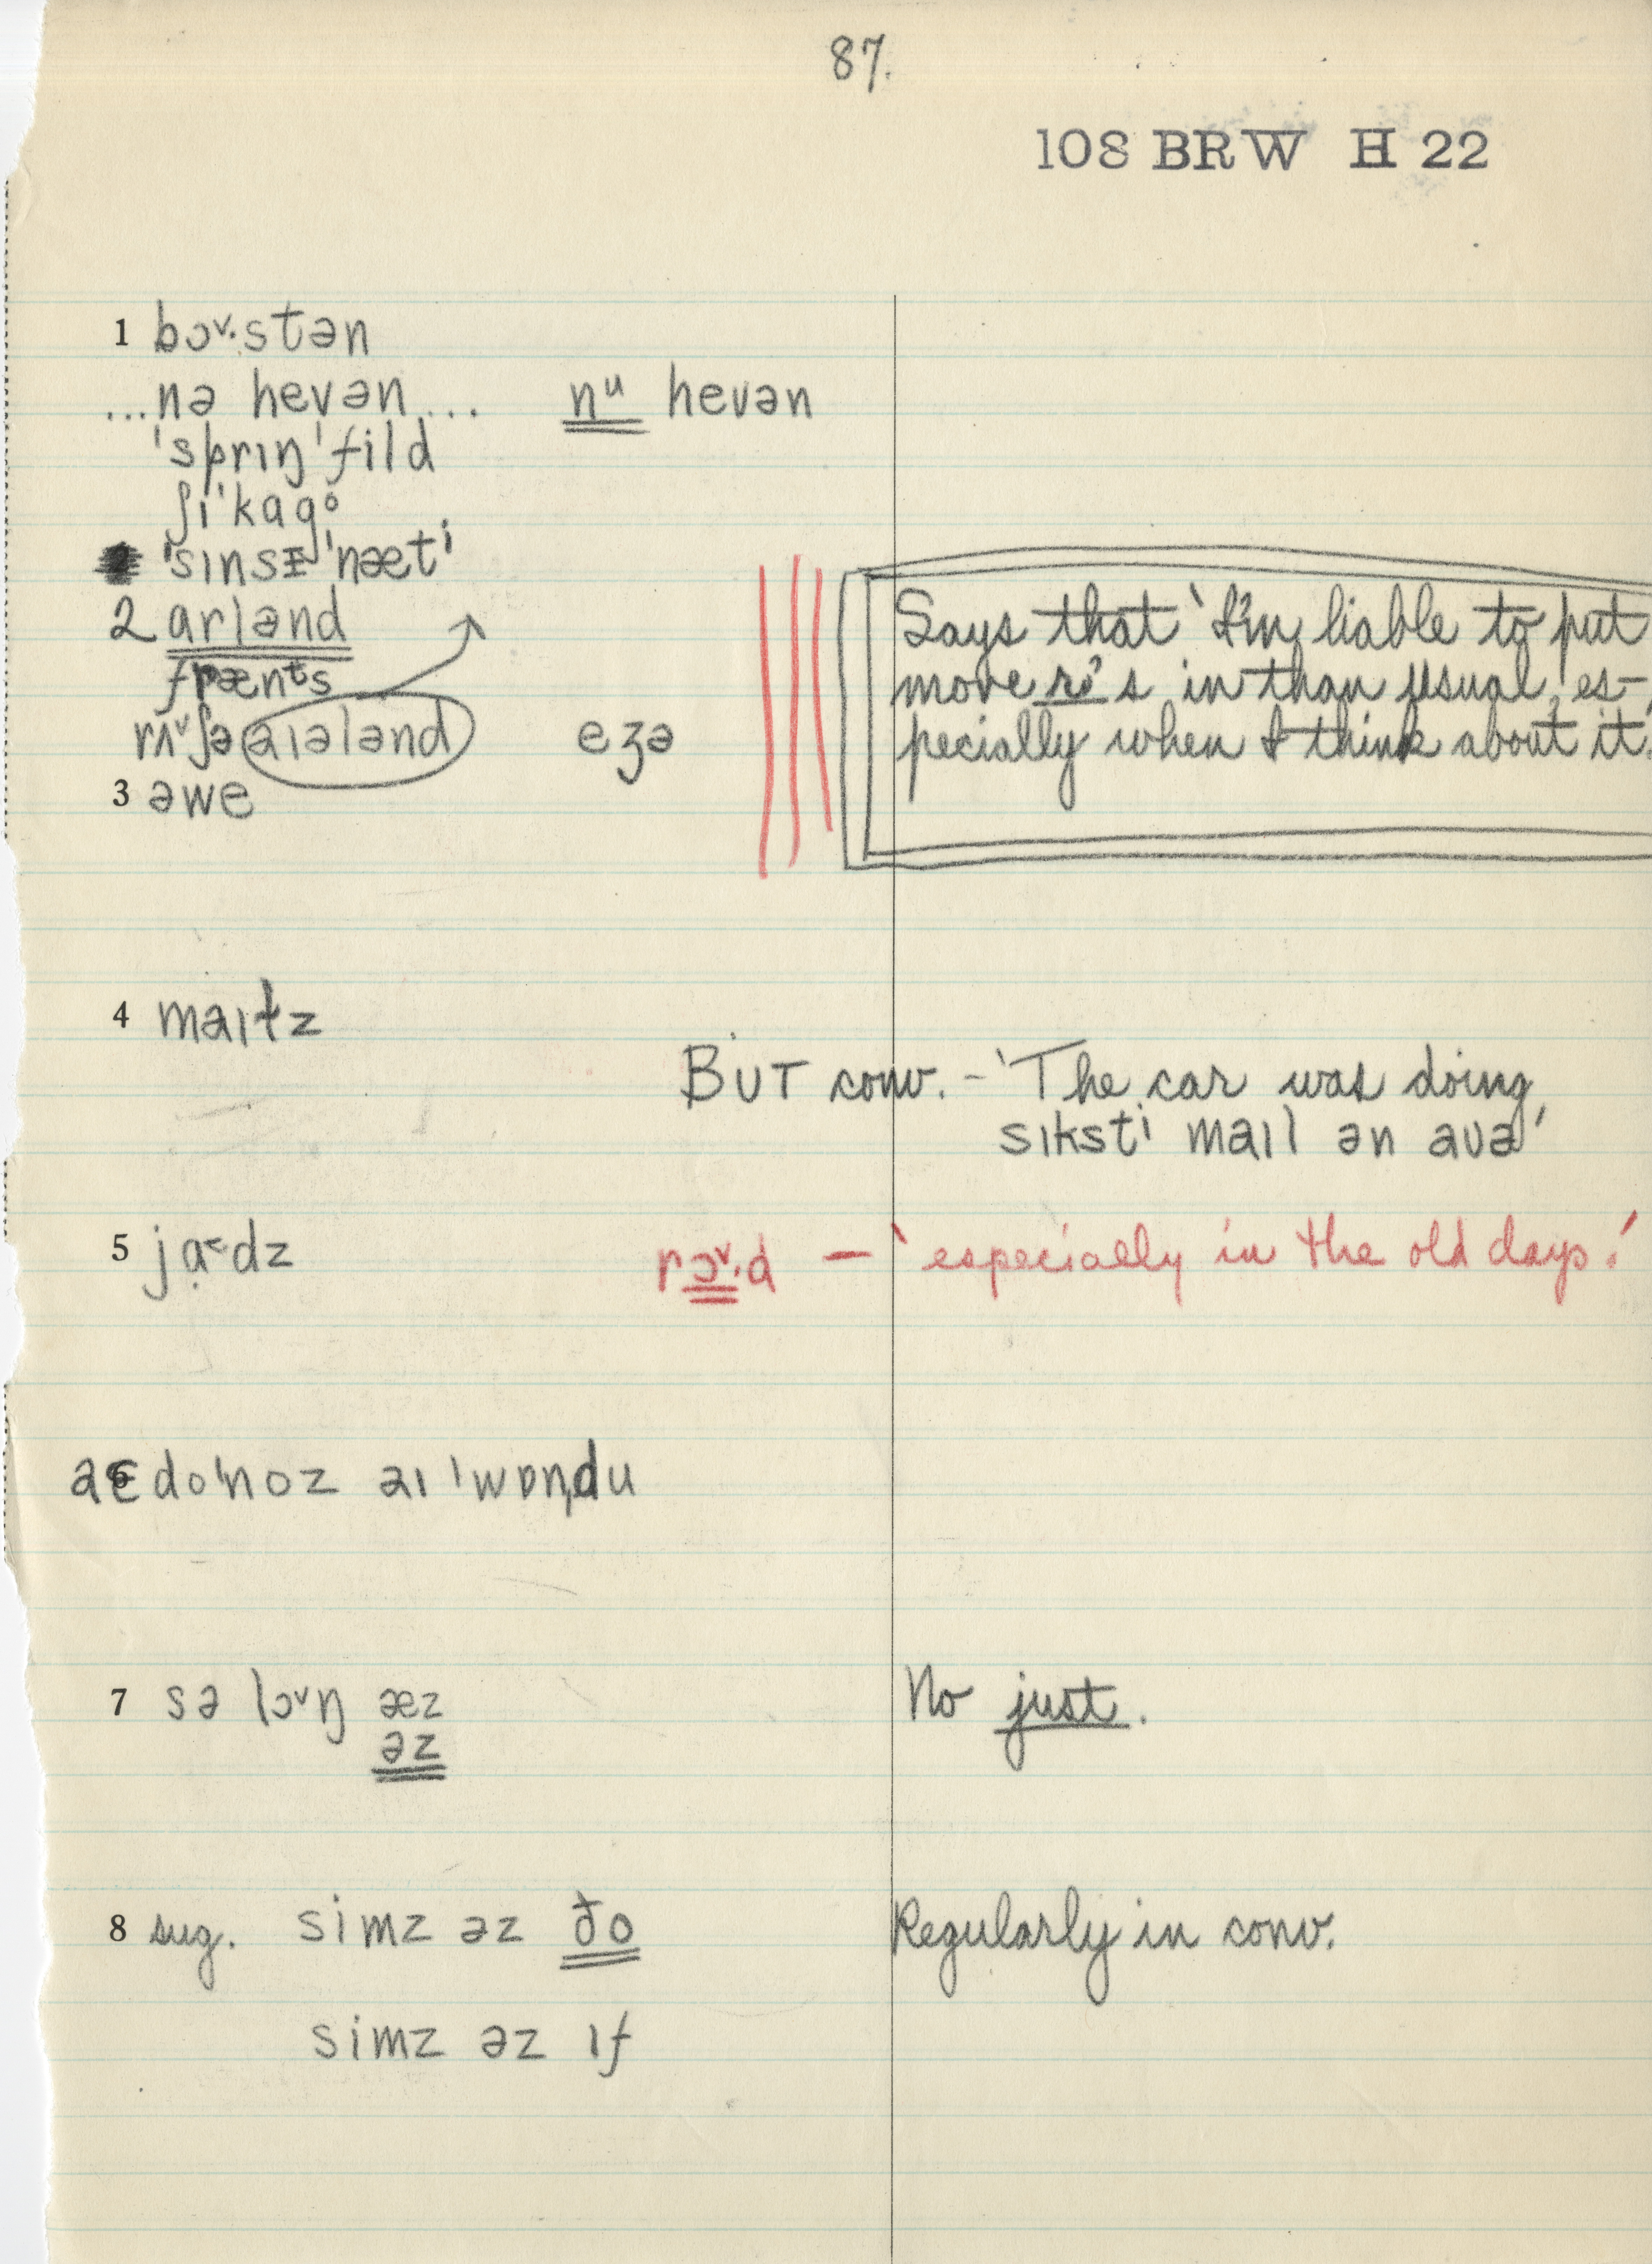 87.
108 BRW H 22
1 bɔ˅·stən
...nə hevən... nᵘ hevən
ˈsprɪŋˈfild
ʃɪˈkɑgᵒ
ˈsɪnsɪˈnætⁱ
2 aɪrlənd
frænᵗs
rʌ˅ʃə aɪələnd eʒə
3 əwe
Says that 'I'm liable to put
more r's in than usual, es-
pecially when I think about it.'
4 maɪɫz
BUT conv. – 'The car was doing
sɪkstⁱ maɪl ən aʊə'
5 jɑ˂dz
rɔ˅·d – 'especially in the old days.'
6 doˈnoz aɪ ˈwɒn̩du
7 sə lɔ˅ŋ æz
əz
No just.
8 sug. simz əz ðo
Regularly in conv.
simz əz ɪf